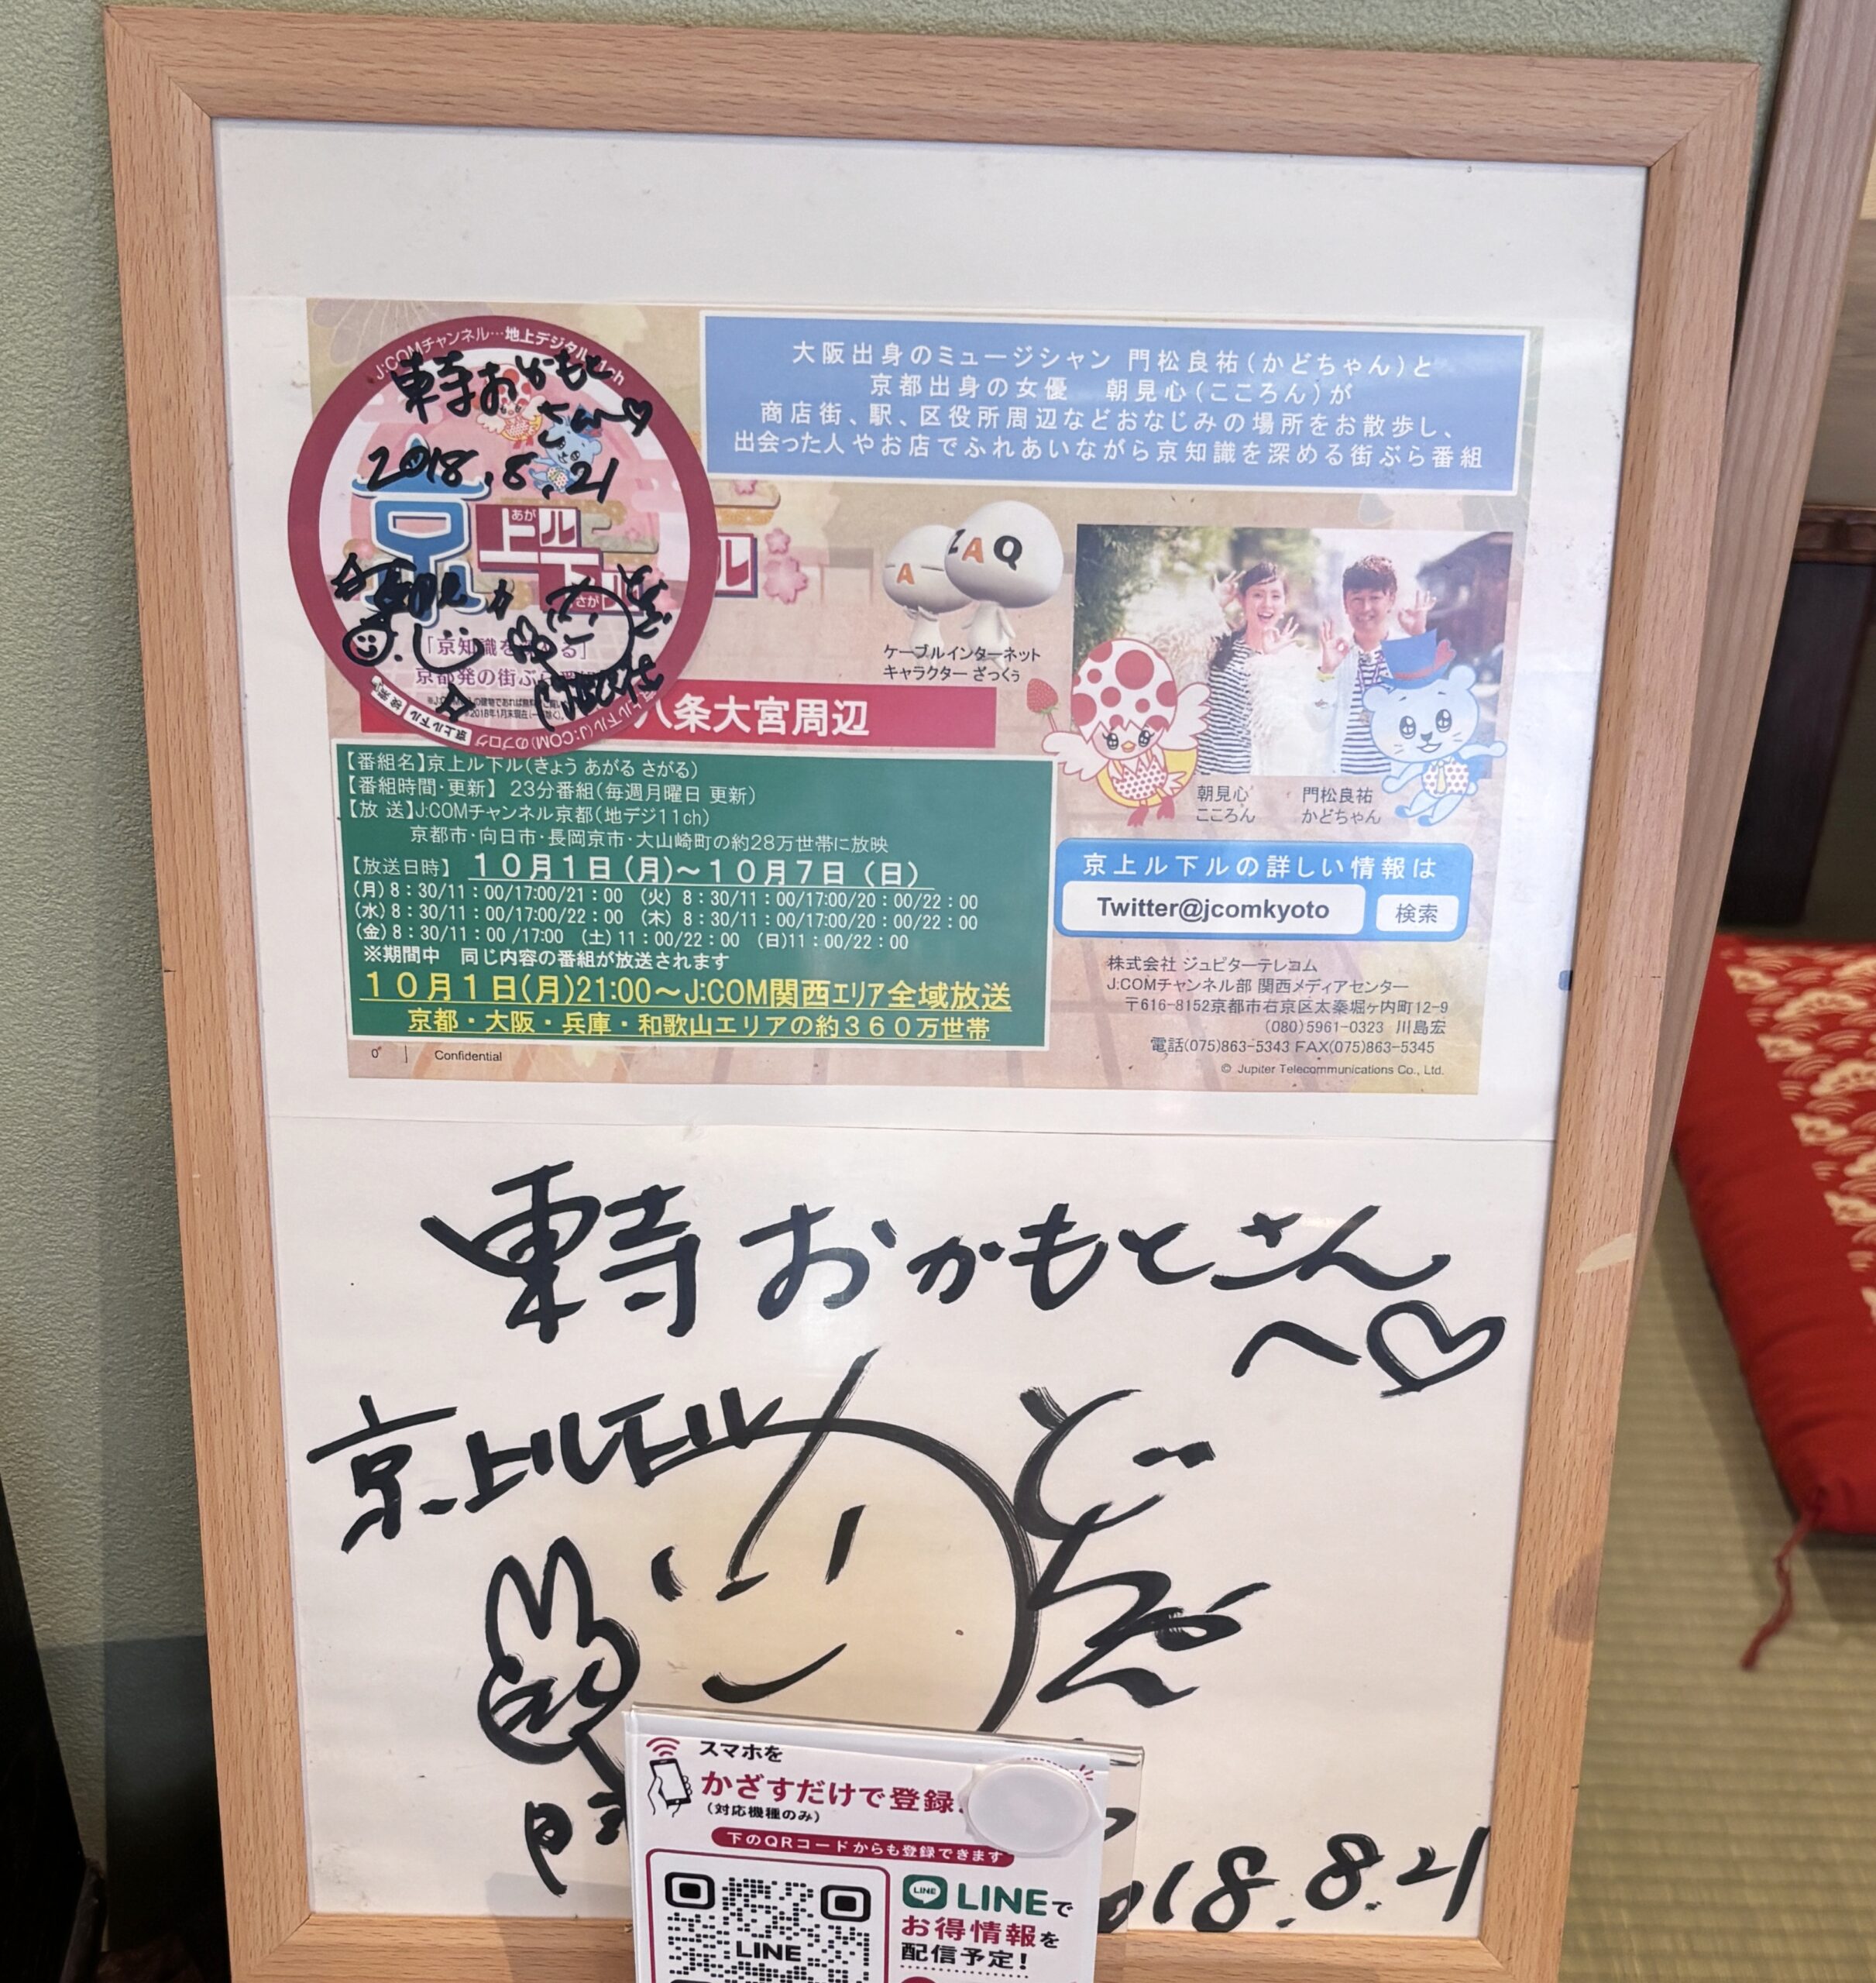 大阪出身のミュージシャン 門松良祐(かどちゃん)と
京都出身の女優 朝見心(こころん)が
商店街、駅、区役所周辺などおなじみの場所をお散歩し、
出会った人やお店でふれあいながら京知識を深める街ぶら番組
J:COMチャンネル…地上デジタル11ch
東寺おかもと
さんへ♡
2018.8.21
京
あが
上ル
下ル
さが
ル
「京知識を
る」
京都発の街ぶら
京上ル下ル
ル下ル(J:COM)のブログ
A
ZAQ
ケーブルインターネット
キャラクター ざっくぅ
八条大宮周辺
朝見心
こころん
門松良祐
かどちゃん
【番組名】京上ル下ル(きょう あがる さがる)
【番組時間・更新】 23分番組(毎週月曜日 更新)
【放 送】J:COMチャンネル京都(地デジ11ch)
京都市・向日市・長岡京市・大山崎町の約28万世帯に放映
【放送日時】 10月1日(月)~10月7日(日)
(月)8:30/11:00/17:00/21:00 (火) 8:30/11:00/17:00/20:00/22:00
(水)8:30/11:00/17:00/22:00 (木) 8:30/11:00/17:00/20:00/22:00
(金)8:30/11:00 /17:00 (土)11:00/22:00 (日)11:00/22:00
※期間中 同じ内容の番組が放送されます
10月1日(月)21:00~J:COM関西エリア全域放送
京都・大阪・兵庫・和歌山エリアの約360万世帯
0
Confidential
京上ル下ルの詳しい情報は
Twitter@jcomkyoto
検索
株式会社 ジュピターテレコム
J:COMチャンネル部 関西メディアセンター
〒616-8152京都市右京区太秦堀ケ内町12-9
(080)5961-0323 川島宏
電話(075)863-5343 FAX(075)863-5345
© Jupiter Telecommunications Co., Ltd.
東寺おかもとさん
へ♡
京上ル下ル
18.8.21
スマホを
かざすだけで登録
(対応機種のみ)
下のQRコードからも登録できます
LINE
LINE
LINEで
お得情報を
配信予定!